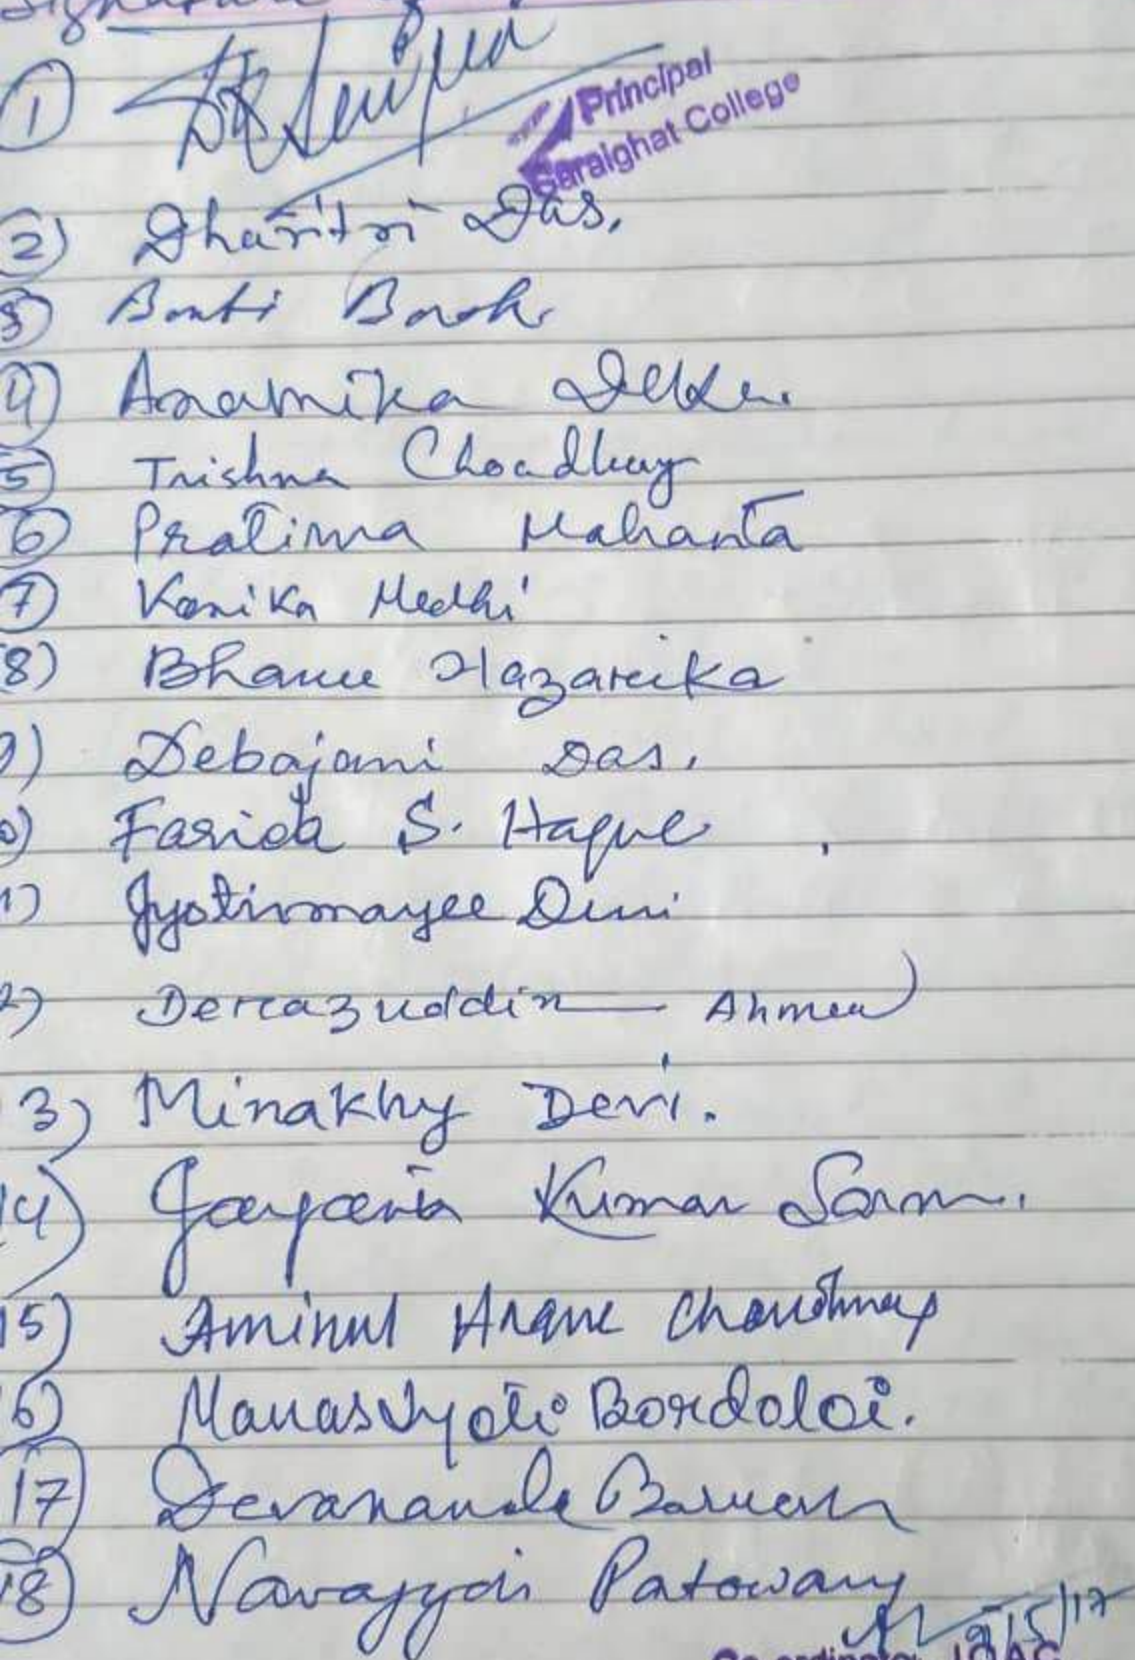 Signature
①
Principal
Saraighat College
2) Dharitri Das.
3) Bonti Borah
4) Anamika Deka.
5) Trishna Choudhury
6) Pratima Mahanta
7) Kanika Medhi
8) Bhanu Hazarika
9) Debajani Das.
0) Farida S. Haque
1) Jyotirmayee Devi
2) Derrazuddin Ahmed
3) Minakhy Devi.
14) Jayanta Kumar Sarma.
15) Aminul Haque Choudhury
6) Manasjyoti Bordoloi.
17) Devananda Baruah
18) Navajyoti Patowary
9/5/17
Co-ordinator, IQAC